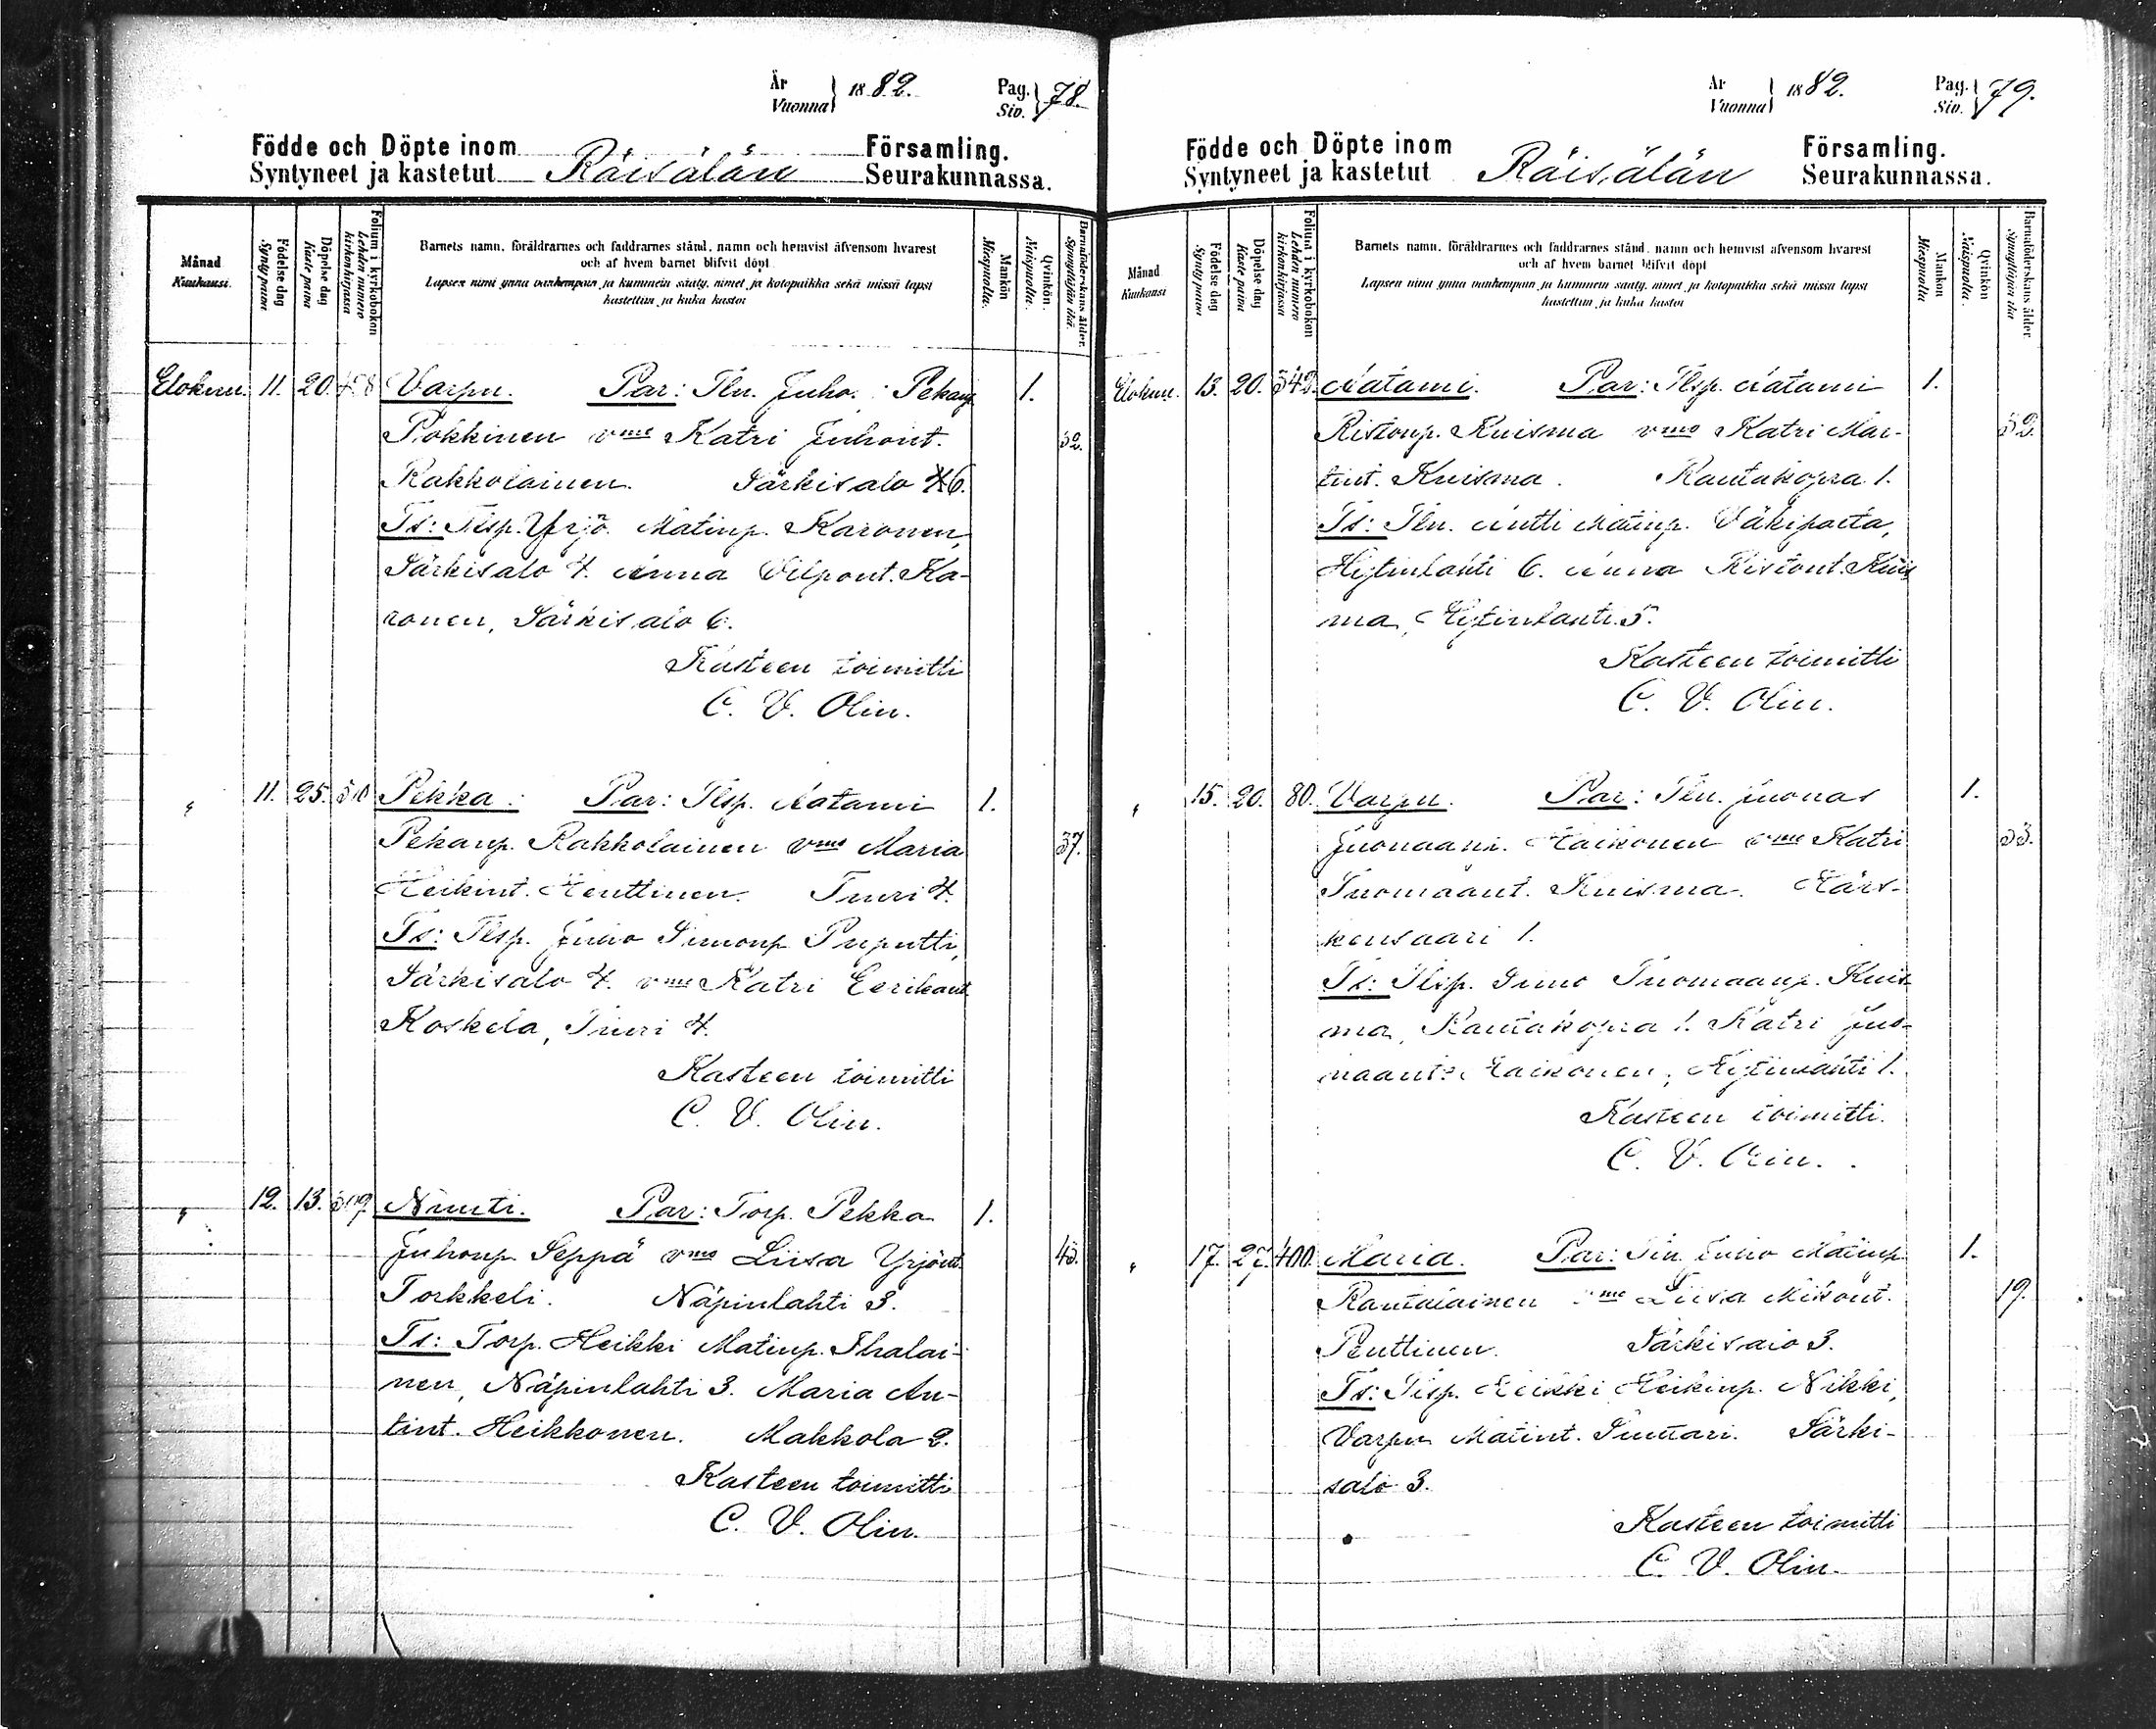 År
Vuonna } 1882.
Pag.
Siv. } 78.
Födde och Döpte inom Församling.
Syntyneet ja kastetut Räisälän Seurakunnassa.
Månad
Kuukausi.
Födelse dag
Synty päivä
Döpelse dag
Kaste päivä
Folium i kyrkobokon
Lehden numero
kirkonkirjassa
Barnets namn, föräldrarnes och faddrarnes stånd, namn och hemvist äfvensom hvarest
och af hvem barnet blifvit döpt
Lapsen nimi ynnä vanhempain ja kummein sääty, nimet ja kotopaikka sekä missä lapsi
kastettiin ja kuka kastoi
Mankön
Miespuolia.
Qvinkön.
Naispuolia.
Barnaföderskans ålder.
Synnyttäjän ikä.
Elokuu. 11. 20. 458 Varpu. Par: Tln. Juho Pekanp. 1.
Pokkinen vmo Katri Juhont. 32.
Rakkolainen. Särkisalo 6.
Ts: Tlsp. Yrjö Matinp. Karonen,
Särkisalo 4. Anna Vilpont. Ka-
ronen, Särkisalo 6.
Kasteen toimitti
C. V. Olin.
" 11. 25. 510 Pekka. Par: Tlsp. Aatami 1.
Pekanp. Rakkolainen vmo Maria 37.
Heikint. Henttinen. Tiuri 4.
Ts: Tlsp. Juho Simonp. Puputti,
Särkisalo 4. vmo Katri Eerikant.
Koskela, Tiuri 4.
Kasteen toimitti
C. V. Olin.
" 12. 13. 309 Nuuti. Par: Torp. Pekka 1.
Juhonp. Seppä vmo Liisa Yrjönt. 43.
Torkkeli. Näpinlahti 3.
Ts: Torp. Heikki Matinp. Ihalai-
nen, Näpinlahti 3. Maria An-
tint. Heikkonen. Makkola 2.
Kasteen toimitti
C. V. Olin.
År
Vuonna } 1882.
Pag.
Siv. } 79.
Födde och Döpte inom Församling.
Syntyneet ja kastetut Räisälän Seurakunnassa.
Månad
Kuukausi
Födelse dag
Synty päivä
Döpelse dag
Kaste päivä
Folium i kyrkobokon
Lehden numero
kirkonkirjassa
Barnets namn, föräldrarnes och faddrarnes stånd, namn och hemvist äfvensom hvarest
och af hvem barnet blifvit döpt
Lapsen nimi ynnä vanhempain ja kummein sääty, nimet ja kotopaikka sekä missä lapsi
kastettiin ja kuka kastoi
Mankön
Miespuolia
Qvinkön
Naispuolia.
Barnaföderskans ålder
Synnyttäjän ikä
Elokuu. 13. 20. 342. Aatami. Par: Tlsp. Aatami 1.
Ristonp. Kuisma vmo Katri Mar- 32.
tint. Kuisma. Rautakopra 1.
Ts: Tln. Antti Matinp. Väkiparta,
Hytinlahti 6. Anna Ristont. Kuis
ma, Hytinlahti 5.
Kasteen toimitti
C. V. Olin.
" 15. 20. 80. Varpu. Par: Tln. Juonas 1.
Juonaanp. Haikonen vmo Katri 33.
Tuomaant. Kuisma. Härs-
kensaari 1.
Ts: Tlsp. Simo Tuomaanp. Kuis-
ma, Rautakopra 1. Katri Juo-
naant. Haikonen, Hytinlahti 1.
Kasteen toimitti.
C. V. Olin.
" 17. 27. 400. Maria. Par: Tln. Juho Matinp. 1.
Rantalainen vmo Liisa Mikont. 19.
Penttinen. Särkisalo 3.
Ts: Tlsp. Heikki Heikinp. Nikki,
Varpu Matint. Sinttari. Särki-
salo 3.
Kasteen toimitti
C. V. Olin.